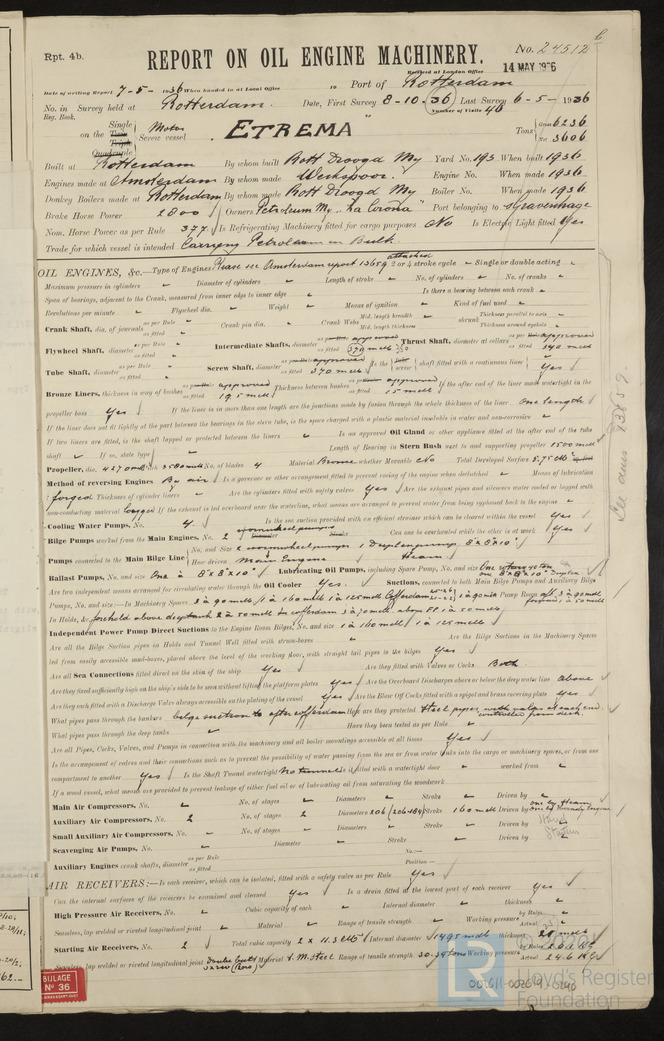 Rpt. 4b.
REPORT ON OIL ENGINE MACHINERY.
No. 24512
Received at London Office
14 MAY 1936
Date of writing Report 7-5-1936 When handed in at Local Office 19 Port of Rotterdam
No. in Survey held at Rotterdam. Date, First Survey 8-10-36 Last Survey 6-5-1936
Reg. Book. Number of Visits 46
Single
on the Twin
Triple
Quadruple
Motor
Screw vessel
"ETREMA"
Tons Gross 6236
Net 3606
Built at Rotterdam By whom built Rott Droogd My Yard No. 193. When built 1936
Engines made at Amsterdam By whom made Werkspoor. Engine No. When made 1936.
Donkey Boilers made at Rotterdam By whom made Rott Droogd My Boiler No. When made 1936
Brake Horse Power 2800 Owners Petroleum My "La Corona" Port belonging to s'Gravenhage
Nom. Horse Power as per Rule 377 Is Refrigerating Machinery fitted for cargo purposes No Is Electric Light fitted Yes
Trade for which vessel is intended Carrying Petroleum in Bulk.
OIL ENGINES, &c.—Type of Engines Please see Amsterdam report 13659 attached 2 or 4 stroke cycle Single or double acting
Maximum pressure in cylinders Diameter of cylinders Length of stroke No. of cylinders No. of cranks
Span of bearings, adjacent to the Crank, measured from inner edge to inner edge Is there a bearing between each crank
Revolutions per minute Flywheel dia. Weight Means of ignition Kind of fuel used
Crank Shaft, dia. of journals as per Rule as fitted Crank pin dia. Crank Webs Mid. length breadth Mid. length thickness shrunk Thickness parallel to axis Thickness around eyehole
Flywheel Shaft, diameter as per Rule as fitted Intermediate Shafts, diameter approved as fitted 370 Thrust Shaft, diameter at collars approved as fitted 340 mell
Tube Shaft, diameter as per Rule as fitted Screw Shaft, diameter approved as fitted 370 mell Is the tube screw shaft fitted with a continuous liner Yes
Bronze Liners, thickness in way of bushes approved as fitted 19.5 mell Thickness between bushes approved as fitted 15 mell If the after end of the liner made watertight in the
propeller boss Yes If the liner is in more than one length are the junctions made by fusion through the whole thickness of the liner One length
If the liner does not fit tightly at the part between the bearings in the stern tube, is the space charged with a plastic material insoluble in water and non-corrosive
If two liners are fitted, is the shaft lapped or protected between the liners Is an approved Oil Gland or other appliance fitted at the after end of the tube
shaft If so, state type Length of Bearing in Stern Bush next to and supporting propeller 1500 mell
Propeller, dia. 4270 mell 3580 mell No. of blades 4 Material Bronze whether Moveable No Total Developed Surface 5.75
Method of reversing Engines By air Is a governor or other arrangement fitted to prevent racing of the engine when declutched Means of lubrication
forced Thickness of cylinder liners Are the cylinders fitted with safety valves Yes Are the exhaust pipes and silencers water cooled or lagged with
non-conducting material lagged If the exhaust is led overboard near the waterline, what means are arranged to prevent water from being syphoned back to the engine
Cooling Water Pumps, No. 4. Is the sea suction provided with an efficient strainer which can be cleared within the vessel Yes
Bilge Pumps worked from the Main Engines, No. 2 Can one be overhauled while the other is at work Yes
Pumps connected to the Main Bilge Line No. and Size 2 wormwheel pumps 1 Duplex pump 8"x8"x10"
How driven Main Engine Steam
Ballast Pumps, No. and size One á 8"x8"x10" Lubricating Oil Pumps, including Spare Pump, No. and size One rotary 45 ton one 8"x8"x10" Duplex
Are two independent means arranged for circulating water through the Oil Cooler Yes. Suctions, connected to both Main Bilge Pumps and Auxiliary Bilge
Pumps, No. and size:—In Machinery Spaces 3 á 90 mell 1 á 160 mell 1 á 125 mell Cofferdam 1 á 90 mm Pump Room
In Holds, &c. forehold above deeptank 2 á 50 mell in cofferdam 3 á 70 mell above FP 1 á 50 mell
Independent Power Pump Direct Suctions to the Engine Room Bilges, No. and size 1 á 160 mell 1 á 125 mell
Are all the Bilge Suction pipes in Holds and Tunnel Well fitted with strum-boxes Are the Bilge Suctions in the Machinery Spaces
led from easily accessible mud-boxes, placed above the level of the working floor, with straight tail pipes to the bilges Yes
Are all Sea Connections fitted direct on the skin of the ship Yes Are they fitted with Valves or Cocks Both
Are they fixed sufficiently high on the ship's side to be seen without lifting the platform plates Yes Are the Overboard Discharges above or below the deep water line above
Are they each fitted with a Discharge Valve always accessible on the plating of the vessel Yes Are the Blow Off Cocks fitted with a spigot and brass covering plate Yes
What pipes pass through the bunkers bilge suction to after cofferdam How are they protected Steel pipes with valves at each end controlled from deck.
What pipes pass through the deep tanks Have they been tested as per Rule
Are all Pipes, Cocks, Valves, and Pumps in connection with the machinery and all boiler mountings accessible at all times Yes
Is the arrangement of valves and their connections such as to prevent the possibility of water passing from the sea or from water tanks into the cargo or machinery spaces, or from one
compartment to another Yes Is the Shaft Tunnel watertight No tunnel Is it fitted with a watertight door worked from
If a wood vessel, what means are provided to prevent leakage of either fuel oil or of lubricating oil from saturating the woodwork
Main Air Compressors, No. No. of stages Diameters Stroke Driven by one by steam
Auxiliary Air Compressors, No. 2 No. of stages 2 Diameters 206/206-184 Stroke 160 mell Driven by one by Kromhout Engine
Small Auxiliary Air Compressors, No. No. of stages Diameters Stroke Driven by
Scavenging Air Pumps, No. Diameter Stroke Driven by
Auxiliary Engines crank shafts, diameter as per Rule as fitted No. Position
AIR RECEIVERS:—Is each receiver, which can be isolated, fitted with a safety valve as per Rule Yes
Can the internal surfaces of the receivers be examined and cleaned Yes Is a drain fitted at the lowest part of each receiver Yes
High Pressure Air Receivers, No. Cubic capacity of each Internal diameter thickness
Seamless, lap welded or riveted longitudinal joint Material Range of tensile strength Working pressure by Rules Actual
Starting Air Receivers, No. 2 Total cubic capacity 2 x 11.3 Internal diameter 1495 mell thickness 28 mell
Seamless, lap welded or riveted longitudinal joint Material S.M. Steel Range of tensile strength 30-34 tons Working pressure by Rules Actual 24.6 Kg
BIJLAGE
No 36
© 2021
LR
Lloyd's Register
Foundation
002611-002619-0240